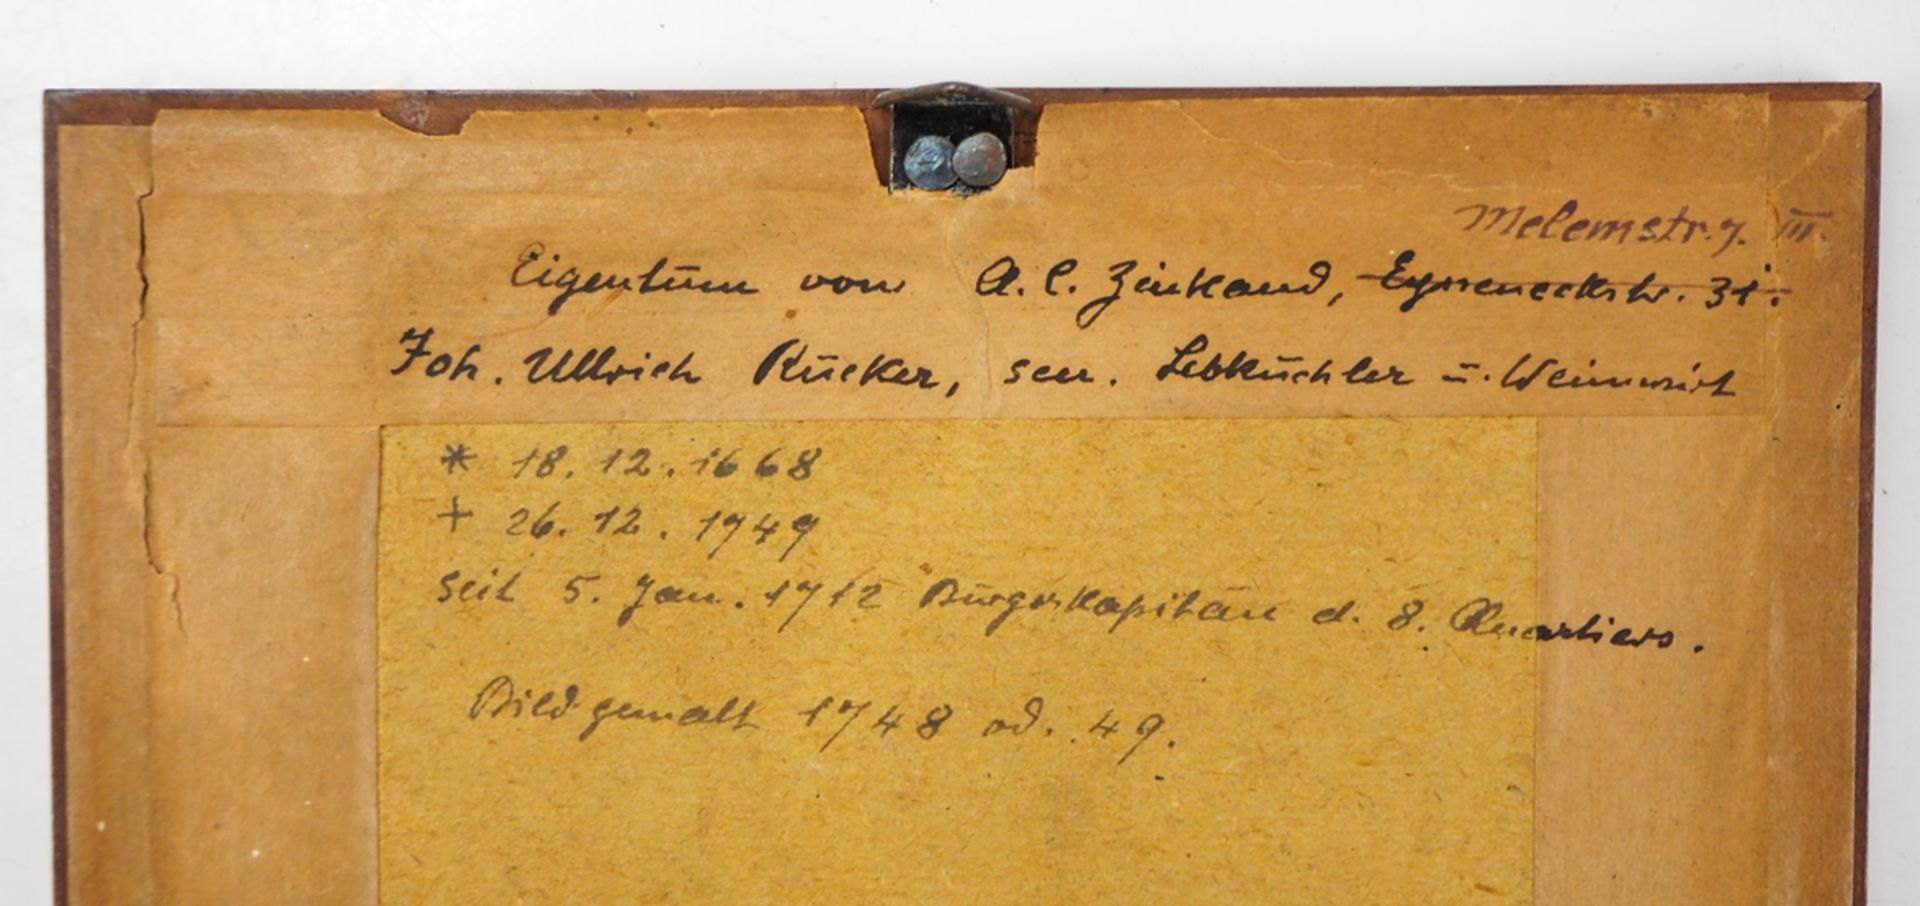 Melemstr. 7. III.
Eigentum von A. C. Zinkand, Eysseneckstr. 31.
Joh. Ullrich Rücker, sen. Lebküchler u. Weinwirt
* 18. 12. 1668
+ 26. 12. 1749
seit 5. Jan. 1712 Bürgerkapitän d. 8. Quartiers.
Bild gemalt 1748 od. 49.